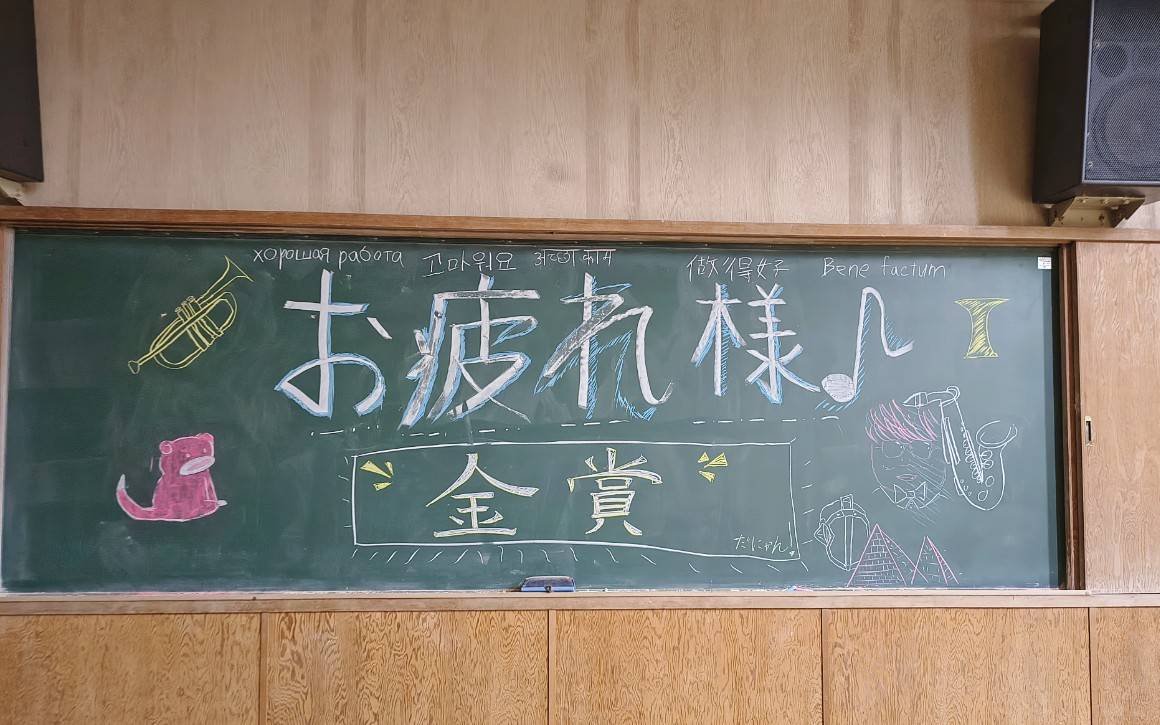 хорошая работа 고마워요 अच्छा काम 做得好 Bene factum
お疲れ様♪
金賞
だにゃん